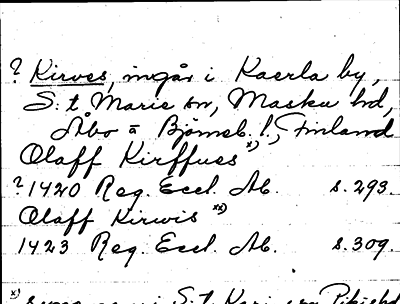 ? Kirves, ingår i Kaerla by,
S:t Marie sn, Masku hd,
Åbo o Björneb. l., Finland
Olaff Kirffues x)
? 1420 Reg. Eccl. Ab. s. 293.
Olaff Kirwis xx)
1423 Reg. Eccl. Ab. s. 309.
x) S:t